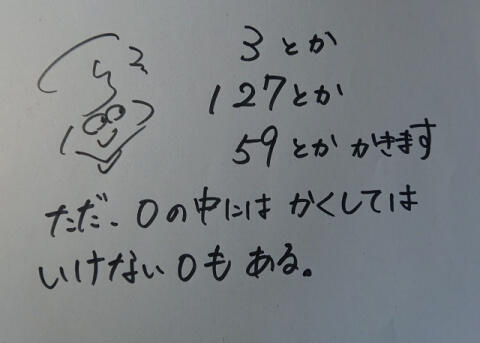 3とか
127とか
59とか かきます
ただ、0の中には かくしては
いけない0も ある。